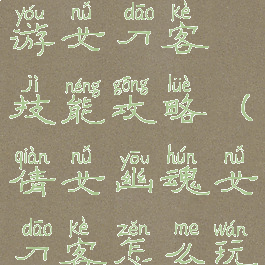 yóu nǚ dāo kè
游女刀客
jì néng gōng lüè
技能攻略（
qiàn nǚ yōu hún nǚ
倩女幽魂女
dāo kè zěn me wán
刀客怎么玩